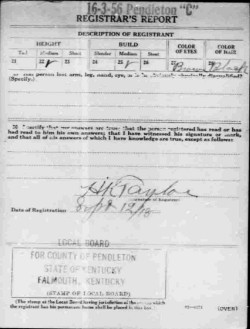 16-3-56 Pendleton
REGISTRAR'S REPORT
DESCRIPTION OF REGISTRANT
HEIGHT BUILD COLOR OF EYES COLOR OF HAIR
Tall Medium Short Slender Medium Stout
21 22 23 24 25 26 27 Brown 28 Black
29 Has person lost arm, leg, hand, eye,
(Specify.)
30 I certify that my answers are true; that the person registered has read or has
had read to him his own answers; that I have witnessed his signature or mark,
and that all of his answers of which I have knowledge are true, except as follows:
H. Taylor
Date of Registration Sept 12/18
LOCAL BOARD
FOR COUNTY OF PENDLETON
STATE OF KENTUCKY
FALMOUTH, KENTUCKY
(STAMP OF LOCAL BOARD)
(The stamp of the Local Board having jurisdiction of the area in which
the registrant has his permanent home shall be placed in this box.)
(OVER)